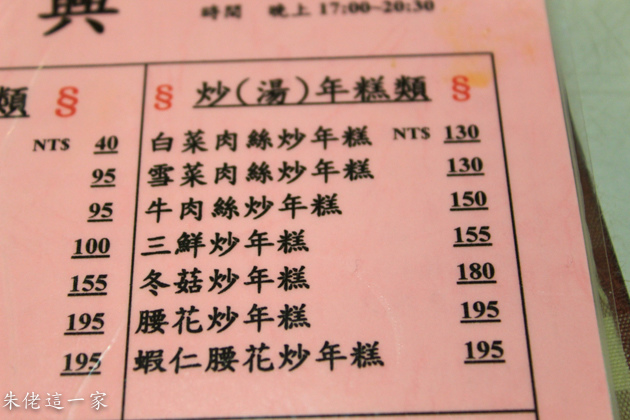 興
時間 晚上 17:00~20:30
類 §
NT$ 40
95
95
100
155
195
195
§ 炒(湯)年糕類 §
白菜肉絲炒年糕 NT$ 130
雪菜肉絲炒年糕 130
牛肉絲炒年糕 150
三鮮炒年糕 155
冬菇炒年糕 180
腰花炒年糕 195
蝦仁腰花炒年糕 195
朱佬這一家